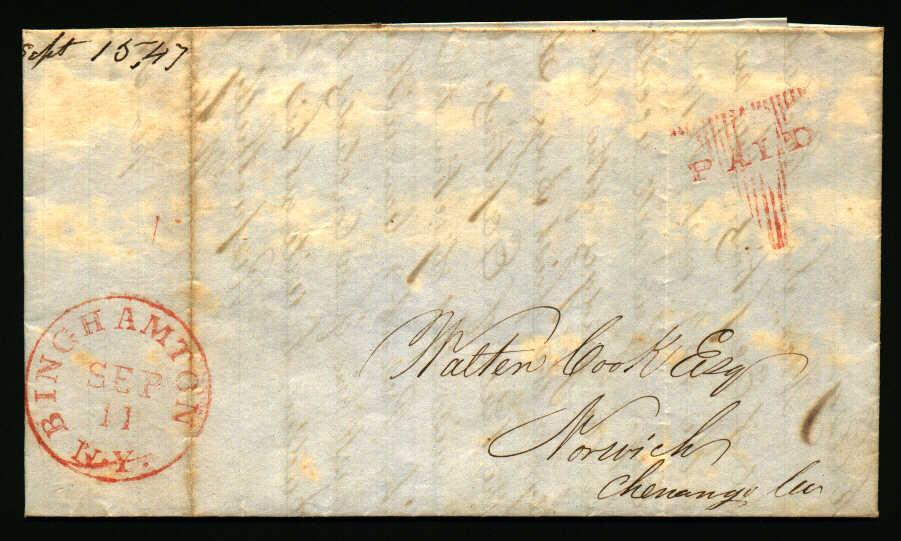 Sept 15, 47
PAID
BINGHAMTON
SEP
11
N.Y.
Walter Cook Esq
Norwich
Chenango Co